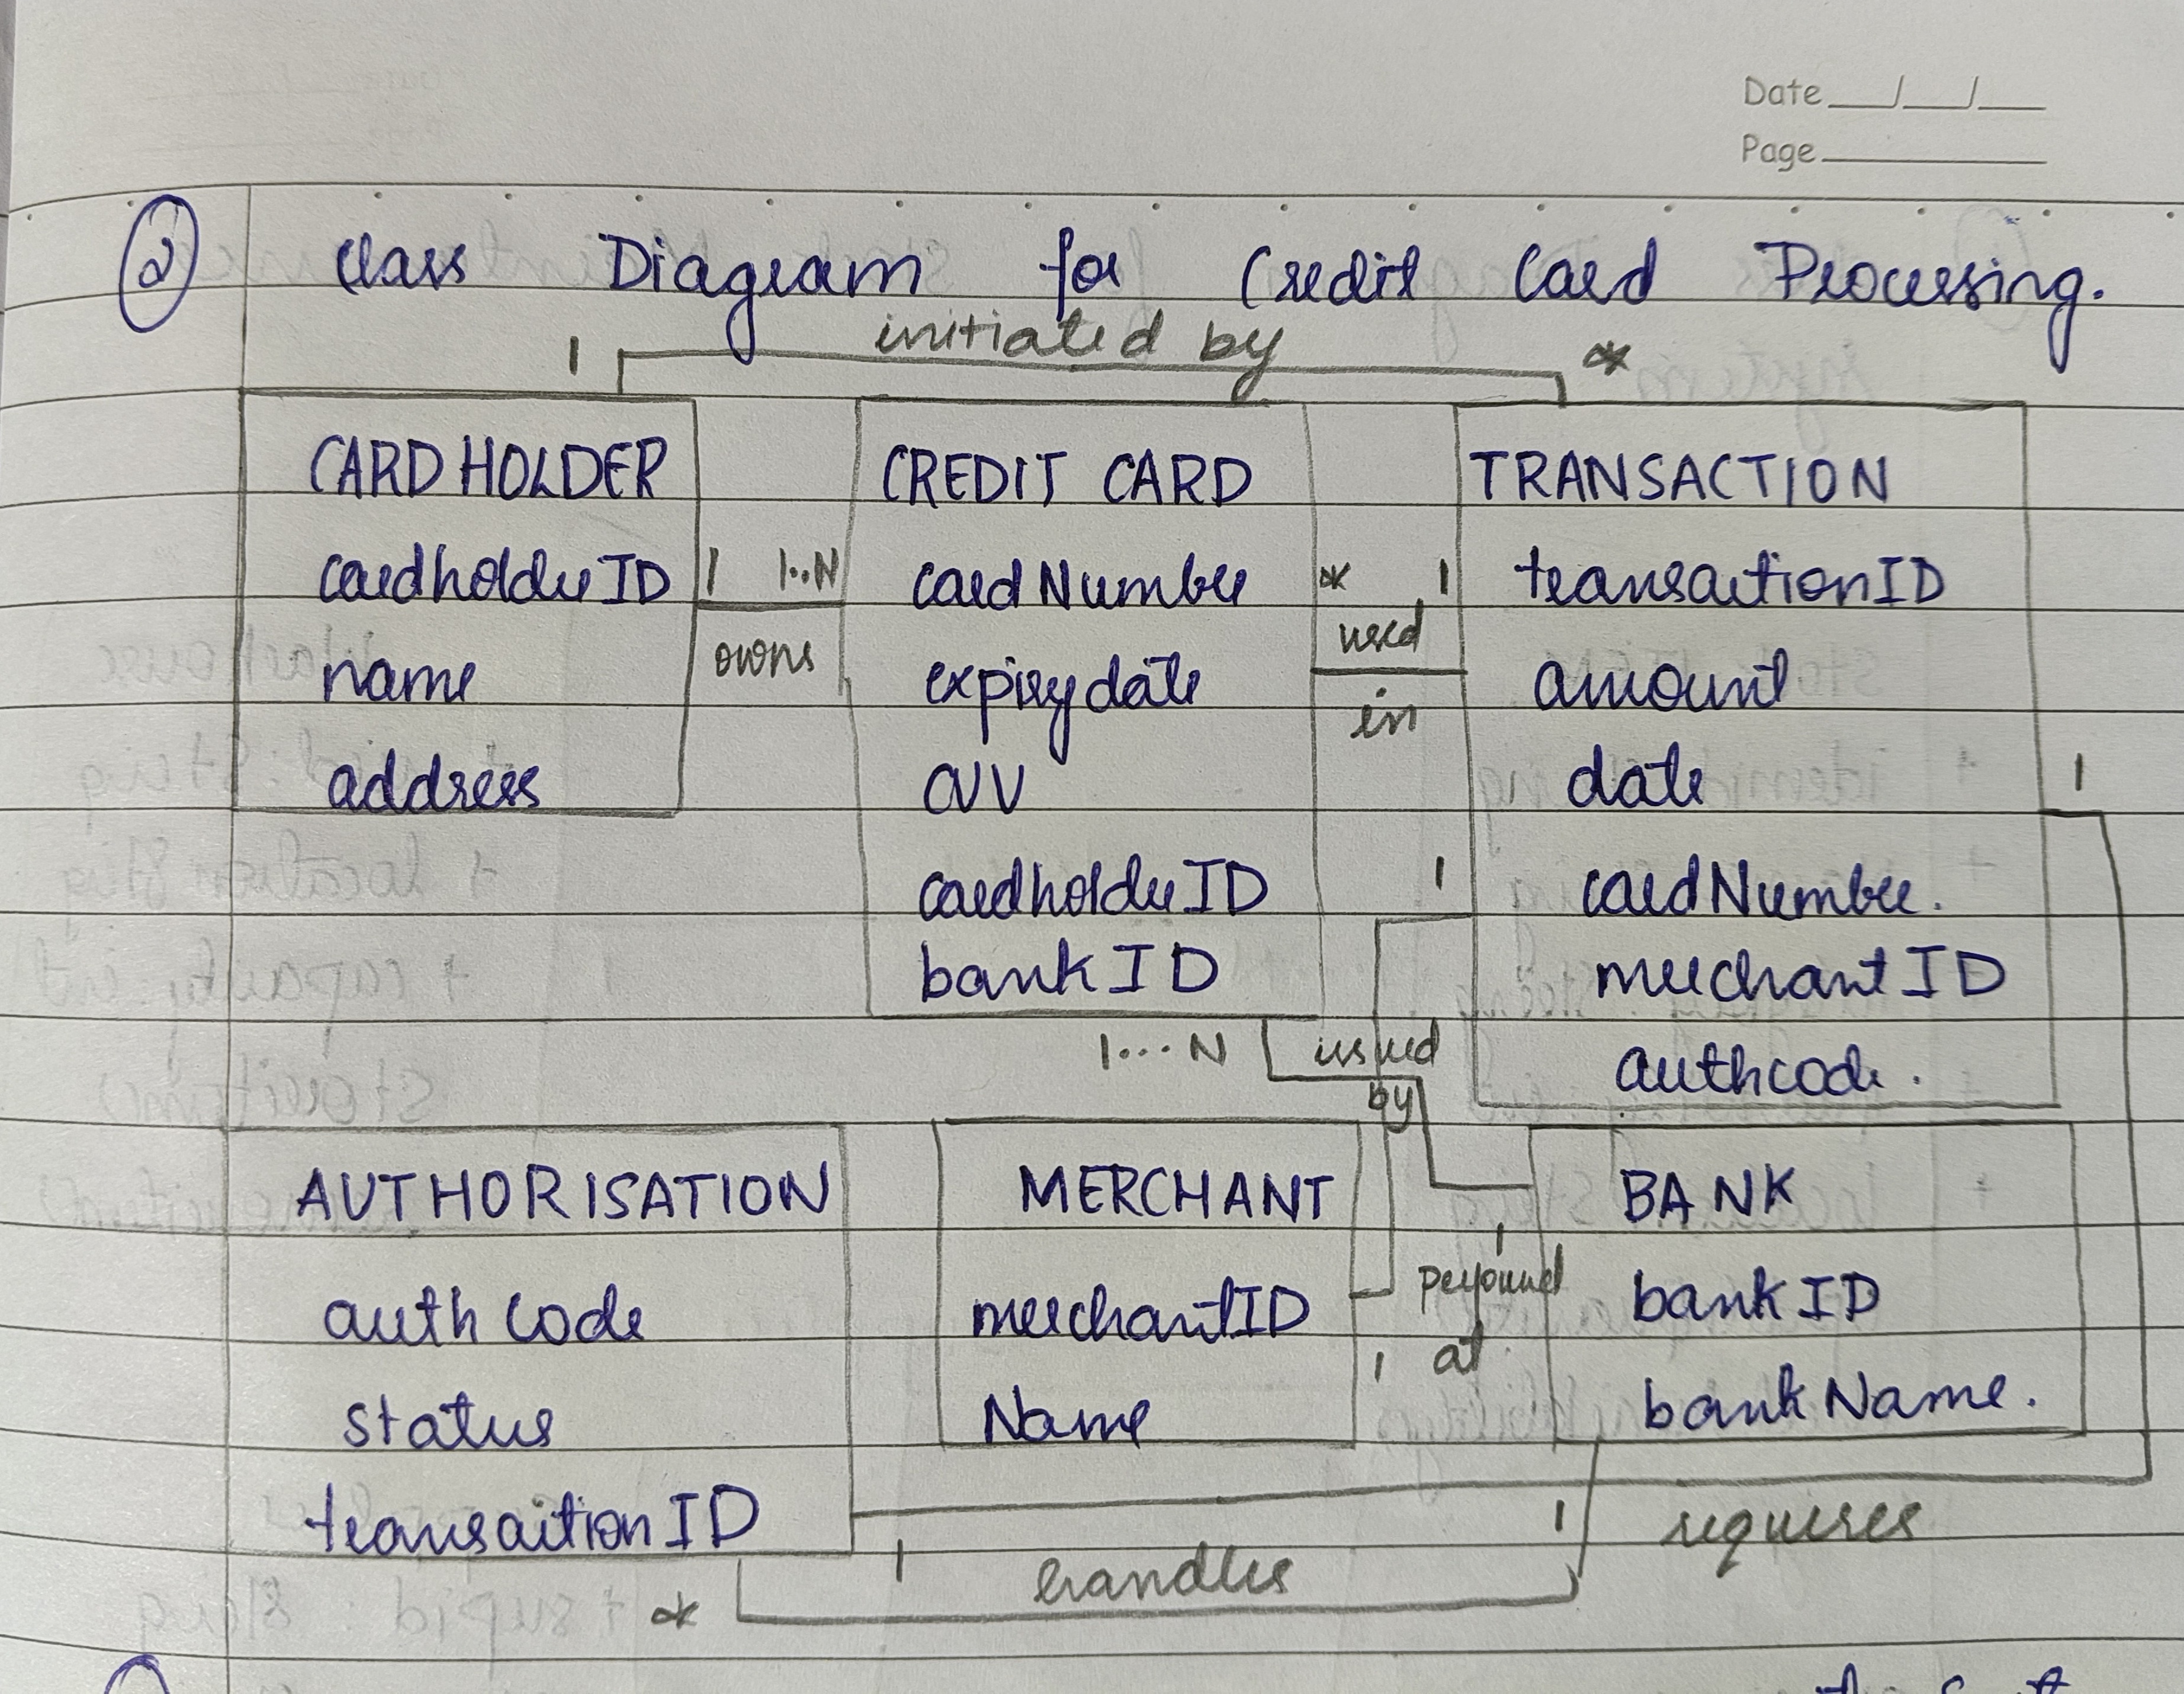 Date __/__/__
Page ______
2 Class Diagram for Credit Card Processing.
1 initiated by *
CARD HOLDER
cardholderID
name
address
1 1..N
owns
CREDIT CARD
cardNumber
expirydate
CVV
cardholderID
bankID
* 1
used
in
TRANSACTION
transactionID
amount
date
cardNumber.
merchantID
authcode.
1
1
1...N issued
by
AUTHORISATION
auth code
status
transactionID
MERCHANT
merchantID
Name
1
at
1
BANK
bankID
bankName.
1 requires
1 handles
*